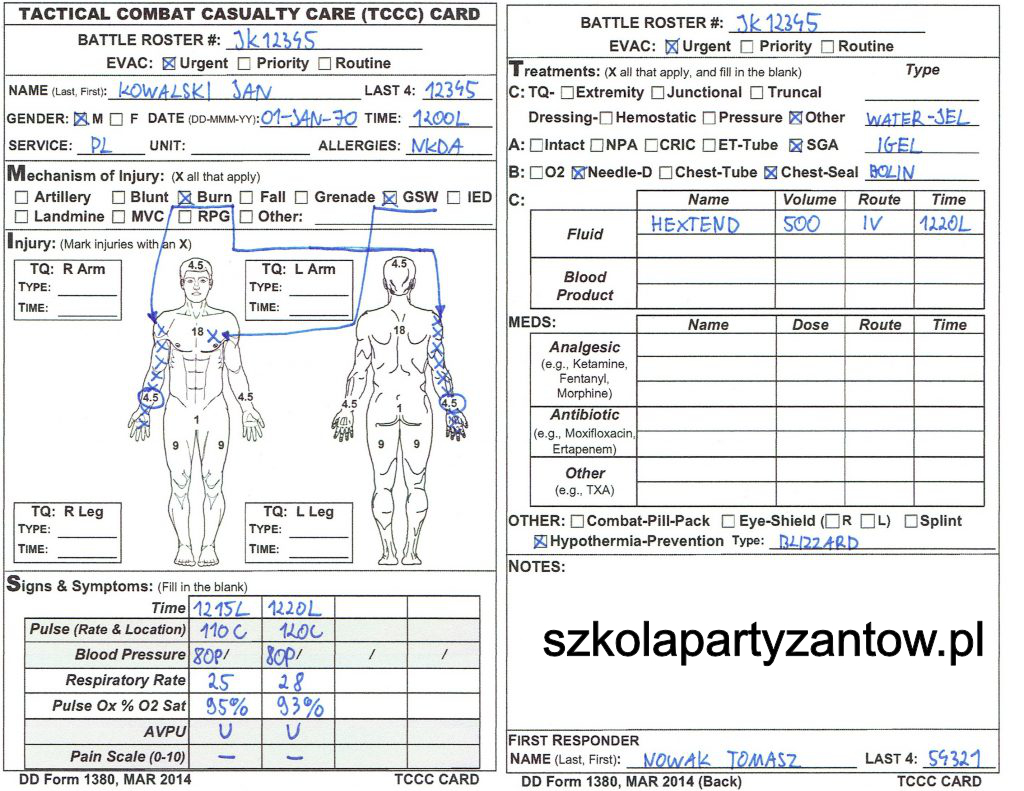 TACTICAL COMBAT CASUALTY CARE (TCCC) CARD
BATTLE ROSTER #: JK12345
EVAC: ☒ Urgent ☐ Priority ☐ Routine
NAME (Last, First): KOWALSKI JAN LAST 4: 12345
GENDER: ☒ M ☐ F DATE (DD-MMM-YY): 01-JAN-70 TIME: 1200L
SERVICE: PL UNIT: ALLERGIES: NKDA
Mechanism of Injury: (X all that apply)
☐ Artillery ☐ Blunt ☒ Burn ☐ Fall ☐ Grenade ☒ GSW ☐ IED
☐ Landmine ☐ MVC ☐ RPG ☐ Other:
Injury: (Mark injuries with an X)
TQ: R Arm
TYPE:
TIME:
TQ: L Arm
TYPE:
TIME:
4.5
18 X
4.5 4.5
1
9 9
4.5
18
4.5 4.5
1
9 9
TQ: R Leg
TYPE:
TIME:
TQ: L Leg
TYPE:
TIME:
Signs & Symptoms: (Fill in the blank)
Time 1215L 1220L
Pulse (Rate & Location) 110C 120C
Blood Pressure 80P/ 80P/ / /
Respiratory Rate 25 28
Pulse Ox % O2 Sat 95% 93%
AVPU U U
Pain Scale (0-10) – –
DD Form 1380, MAR 2014 TCCC CARD
BATTLE ROSTER #: JK12345
EVAC: ☒ Urgent ☐ Priority ☐ Routine
Treatments: (X all that apply, and fill in the blank) Type
C: TQ- ☐ Extremity ☐ Junctional ☐ Truncal
Dressing- ☐ Hemostatic ☐ Pressure ☒ Other WATER-JEL
A: ☐ Intact ☐ NPA ☐ CRIC ☐ ET-Tube ☒ SGA IGEL
B: ☐ O2 ☒ Needle-D ☐ Chest-Tube ☒ Chest-Seal BOLIN
C: Name Volume Route Time
Fluid HEXTEND 500 IV 1220L
Blood Product
MEDS: Name Dose Route Time
Analgesic
(e.g., Ketamine,
Fentanyl,
Morphine)
Antibiotic
(e.g., Moxifloxacin,
Ertapenem)
Other
(e.g., TXA)
OTHER: ☐ Combat-Pill-Pack ☐ Eye-Shield (☐ R ☐ L) ☐ Splint
☒ Hypothermia-Prevention Type: BLIZZARD
NOTES:
szkolapartyzantow.pl
FIRST RESPONDER
NAME (Last, First): NOWAK TOMASZ LAST 4: 54321
DD Form 1380, MAR 2014 (Back) TCCC CARD